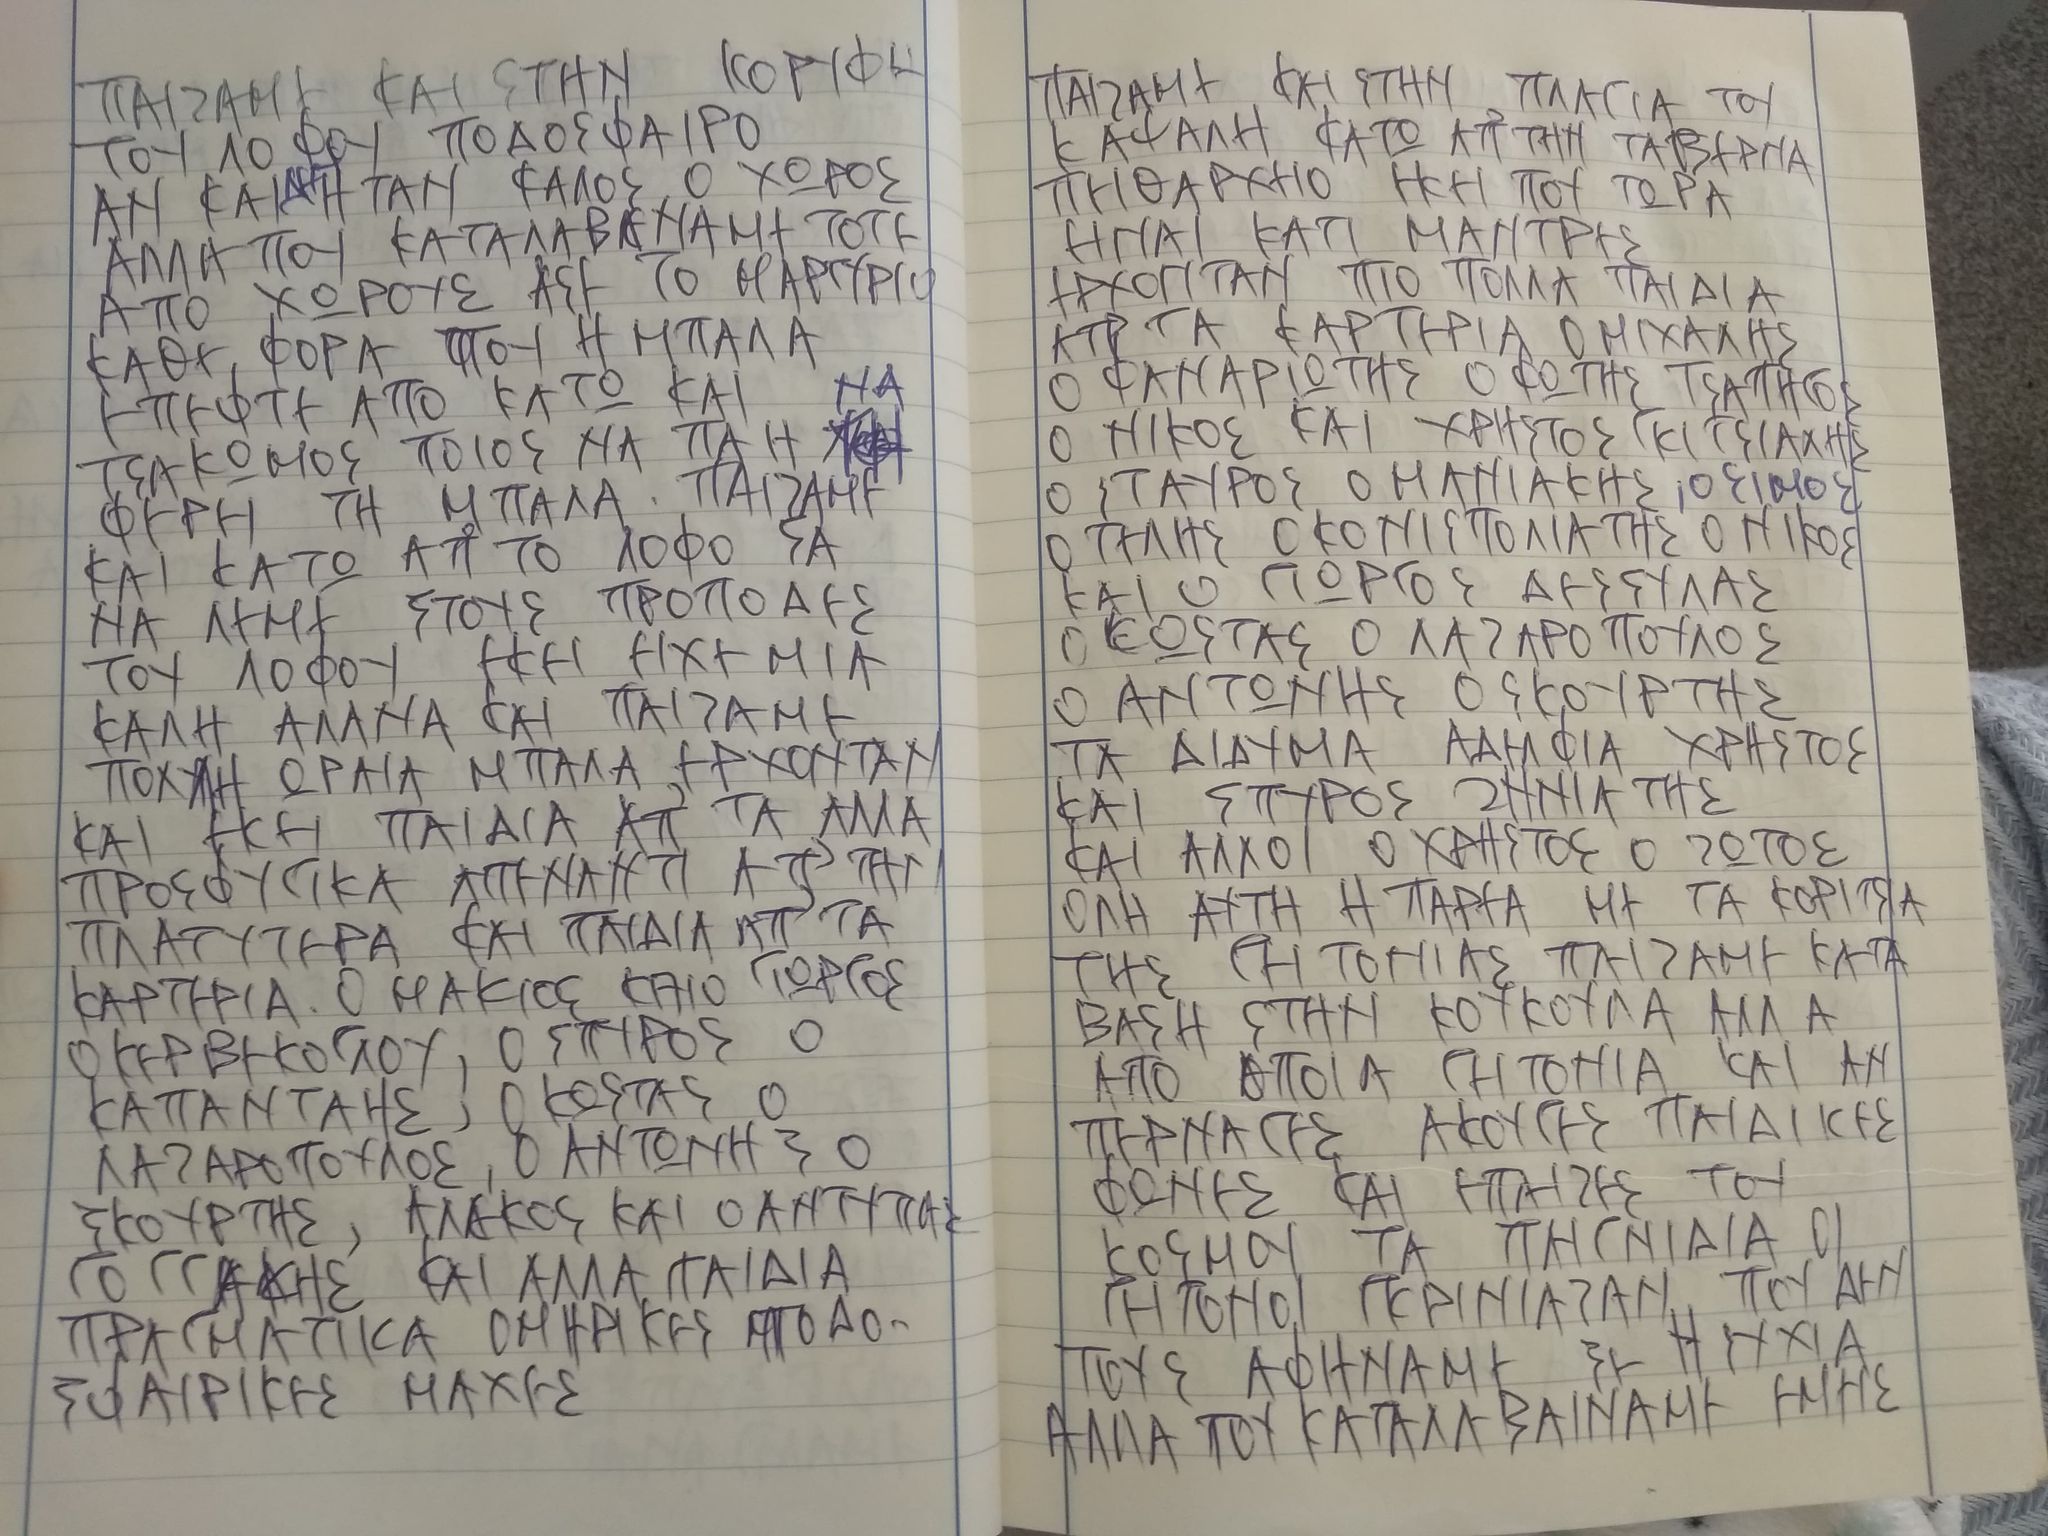 ΠΑΙΖΑΜΕ ΚΑΙ ΣΤΗΝ ΚΟΡΙΦΗ
ΤΟΥ ΛΟΦΟΥ ΠΟΔΟΣΦΑΙΡΟ
ΑΝ ΚΑΙ ΗΤΑΝ ΚΑΛΟΣ Ο ΧΩΡΟΣ
ΑΛΛΑ ΠΟΥ ΚΑΤΑΛΑΒΕΝΑΜΕ ΤΟΤΕ
ΑΠΟ ΧΩΡΟΥΣ ΑΣΕ ΤΟ ΜΑΡΤΥΡΙΟ
ΚΑΘΕ ΦΟΡΑ ΠΟΥ Η ΜΠΑΛΑ
ΕΠΕΦΤΕ ΑΠΟ ΚΑΤΩ ΚΑΙ ΝΑ
ΤΣΑΚΩΜΟΣ ΠΟΙΟΣ ΝΑ ΠΑΗ
ΦΕΡΕΙ ΤΗ ΜΠΑΛΑ. ΠΑΙΖΑΜΕ
ΚΑΙ ΚΑΤΩ ΑΠ' ΤΟ ΛΟΦΟ ΣΑ
ΝΑ ΛΕΜΕ ΣΤΟΥΣ ΠΡΟΠΟΔΕΣ
ΤΟΥ ΛΟΦΟΥ ΕΚΕΙ ΕΙΧΕ ΜΙΑ
ΚΑΛΗ ΑΛΑΝΑ ΚΑΙ ΠΑΙΖΑΜΕ
ΠΟΛΥ ΩΡΑΙΑ ΜΠΑΛΑ ΕΡΧΟΝΤΑΝ
ΚΑΙ ΕΚΕΙ ΠΑΙΔΙΑ ΑΠ' ΤΑ ΑΛΛΑ
ΠΡΟΣΦΥΓΙΚΑ ΑΠΕΝΑΝΤΙ ΑΠ' ΤΗΝ
ΠΛΑΤΥΤΕΡΑ ΚΑΙ ΠΑΙΔΙΑ ΑΠ' ΤΑ
ΚΑΡΤΕΡΙΑ. Ο ΜΑΚΙΟΣ ΚΑΙ Ο ΓΙΩΡΓΟΣ
Ο ΚΕΡΒΕΚΟΓΛΟΥ, Ο ΣΠΙΡΟΣ Ο
ΚΑΠΑΝΤΑΗΣ, Ο ΚΩΣΤΑΣ Ο
ΛΑΖΑΡΟΠΟΥΛΟΣ, Ο ΑΝΤΩΝΗΣ Ο
ΣΚΟΥΡΤΗΣ, ΑΛΕΚΟΣ ΚΑΙ Ο ΑΝΤΥΠΑΣ
ΚΑΙ ΑΛΛΑ ΠΑΙΔΙΑ
ΠΡΑΓΜΑΤΙΚΑ ΟΜΗΡΙΚΕΣ ΠΟΔΟ-
ΣΦΑΙΡΙΚΕΣ ΜΑΧΕΣ
ΠΑΙΖΑΜΕ ΚΑΙ ΣΤΗΝ ΠΛΑΓΙΑ ΤΟΥ
ΚΑΨΑΛΗ ΚΑΤΩ ΑΠ' ΤΗΝ ΤΑΒΕΡΝΑ
ΠΕΙΘΑΡΧΕΙΟ ΕΚΕΙ ΠΟΥ ΤΩΡΑ
ΕΙΝΑΙ ΚΑΤΙ ΜΑΝΤΡΕΣ
ΕΡΧΟΝΤΑΝ ΠΙΟ ΠΟΛΛΑ ΠΑΙΔΙΑ
ΑΠ' ΤΑ ΚΑΡΤΕΡΙΑ Ο ΜΙΧΑΛΗΣ
Ο ΦΑΝΑΡΙΩΤΗΣ Ο ΦΩΤΗΣ ΤΣΑΠΗΤΟΣ
Ο ΝΙΚΟΣ ΚΑΙ ΧΡΗΣΤΟΣ ΓΚΙΤΣΙΑΛΗΣ
Ο ΣΤΑΥΡΟΣ Ο ΜΑΝΙΑΚΗΣ, Ο ΣΙΜΟΣ
Ο ΤΕΛΗΣ Ο ΚΟΝΙΣΠΟΛΙΑΤΗΣ Ο ΝΙΚΟΣ
ΚΑΙ Ο ΓΙΩΡΓΟΣ ΔΕΣΣΥΛΑΣ
Ο ΚΩΣΤΑΣ Ο ΛΑΖΑΡΟΠΟΥΛΟΣ
Ο ΑΝΤΩΝΗΣ Ο ΣΚΟΥΡΤΗΣ
ΤΑ ΔΙΔΥΜΑ ΑΔΕΛΦΙΑ ΧΡΗΣΤΟΣ
ΚΑΙ ΣΠΥΡΟΣ ΖΗΝΙΑΤΗΣ
ΚΑΙ ΑΛΛΟΙ Ο ΧΡΗΣΤΟΣ Ο ΖΩΤΟΣ
ΟΛΗ ΑΥΤΗ Η ΠΑΡΕΑ ΜΕ ΤΑ ΚΟΡΙΤΣΙΑ
ΤΗΣ ΓΕΙΤΟΝΙΑΣ ΠΑΙΖΑΜΕ ΚΑΤΑ
ΒΑΣΗ ΣΤΗΝ ΚΟΥΚΟΥΛΑ ΑΛΛΑ
ΑΠΟ ΟΠΟΙΑ ΓΕΙΤΟΝΙΑ ΚΑΙ ΑΝ
ΠΕΡΝΑΓΕΣ ΑΚΟΥΓΕΣ ΠΑΙΔΙΚΕΣ
ΦΩΝΕΣ ΚΑΙ ΕΠΑΙΖΕΣ ΤΟΥ
ΚΟΣΜΟΥ ΤΑ ΠΕΓΝΙΔΙΑ ΟΙ
ΓΕΙΤΟΝΟΙ ΓΚΡΙΝΙΑΖΑΝ ΠΟΥ ΔΕΝ
ΤΟΥΣ ΑΦΗΝΑΜΕ ΣΕ ΗΣΥΧΙΑ
ΑΛΛΑ ΠΟΥ ΚΑΤΑΛΑΒΑΙΝΑΜΕ ΕΜΕΙΣ